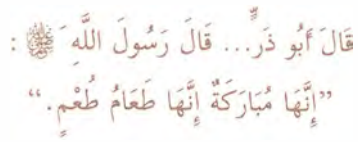 قَالَ أَبُو ذَرٍّ... قَالَ رَسُولَ اللَّهِ ﷺ :
”إِنَّهَا مُبَارَكَةٌ إِنَّهَا طَعَامُ طُعْمٍ.“